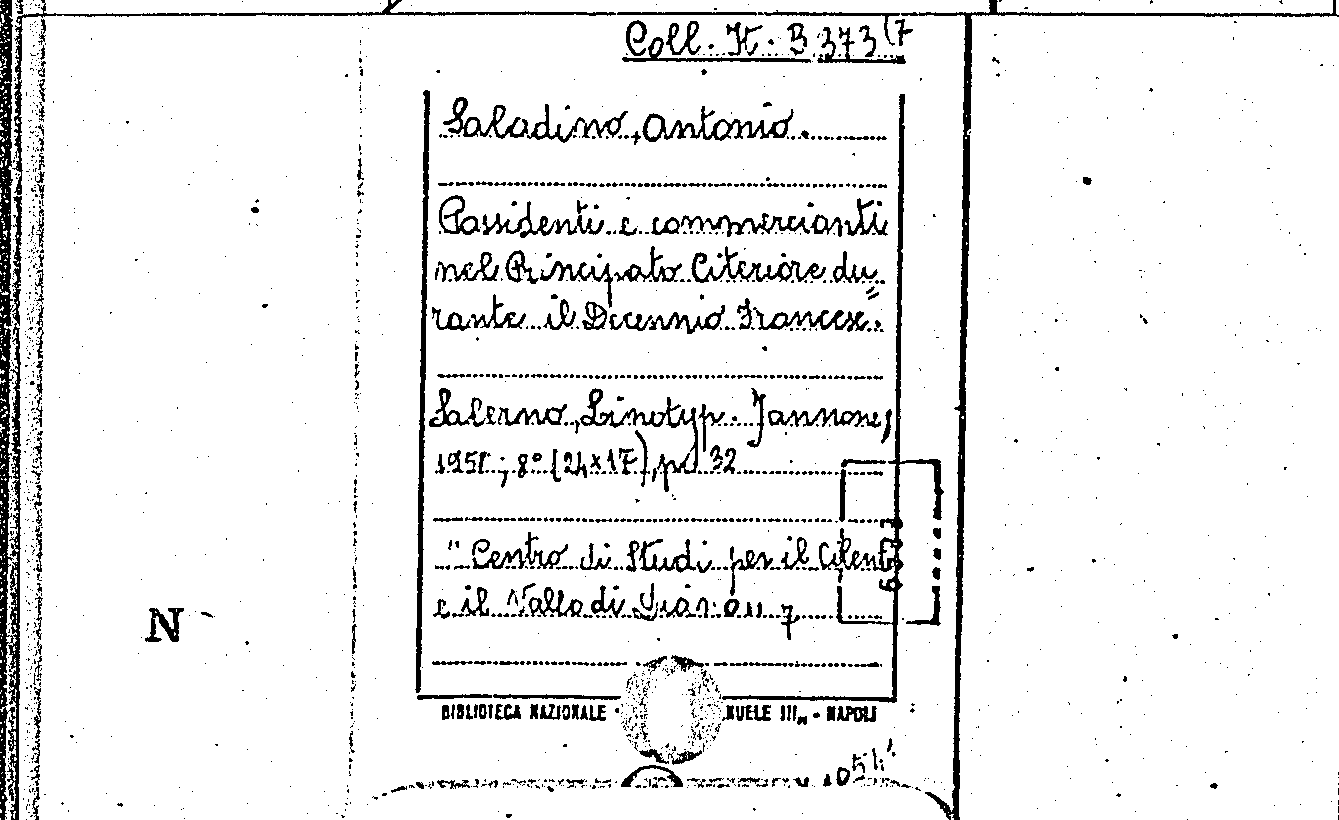 Coll. It. B 373 (7
Saladino, Antonio.
Possidenti e commercianti
nel Principato Citeriore du=
rante il Decennio Francese.
Salerno, Linotyp. Jannone,
; 8° (24x17), p. 32
"Centro di Studi per il Cilento
e il Vallo di 7
N
BIBLIOTECA NAZIONALE NUELE III„ - NAPOLI